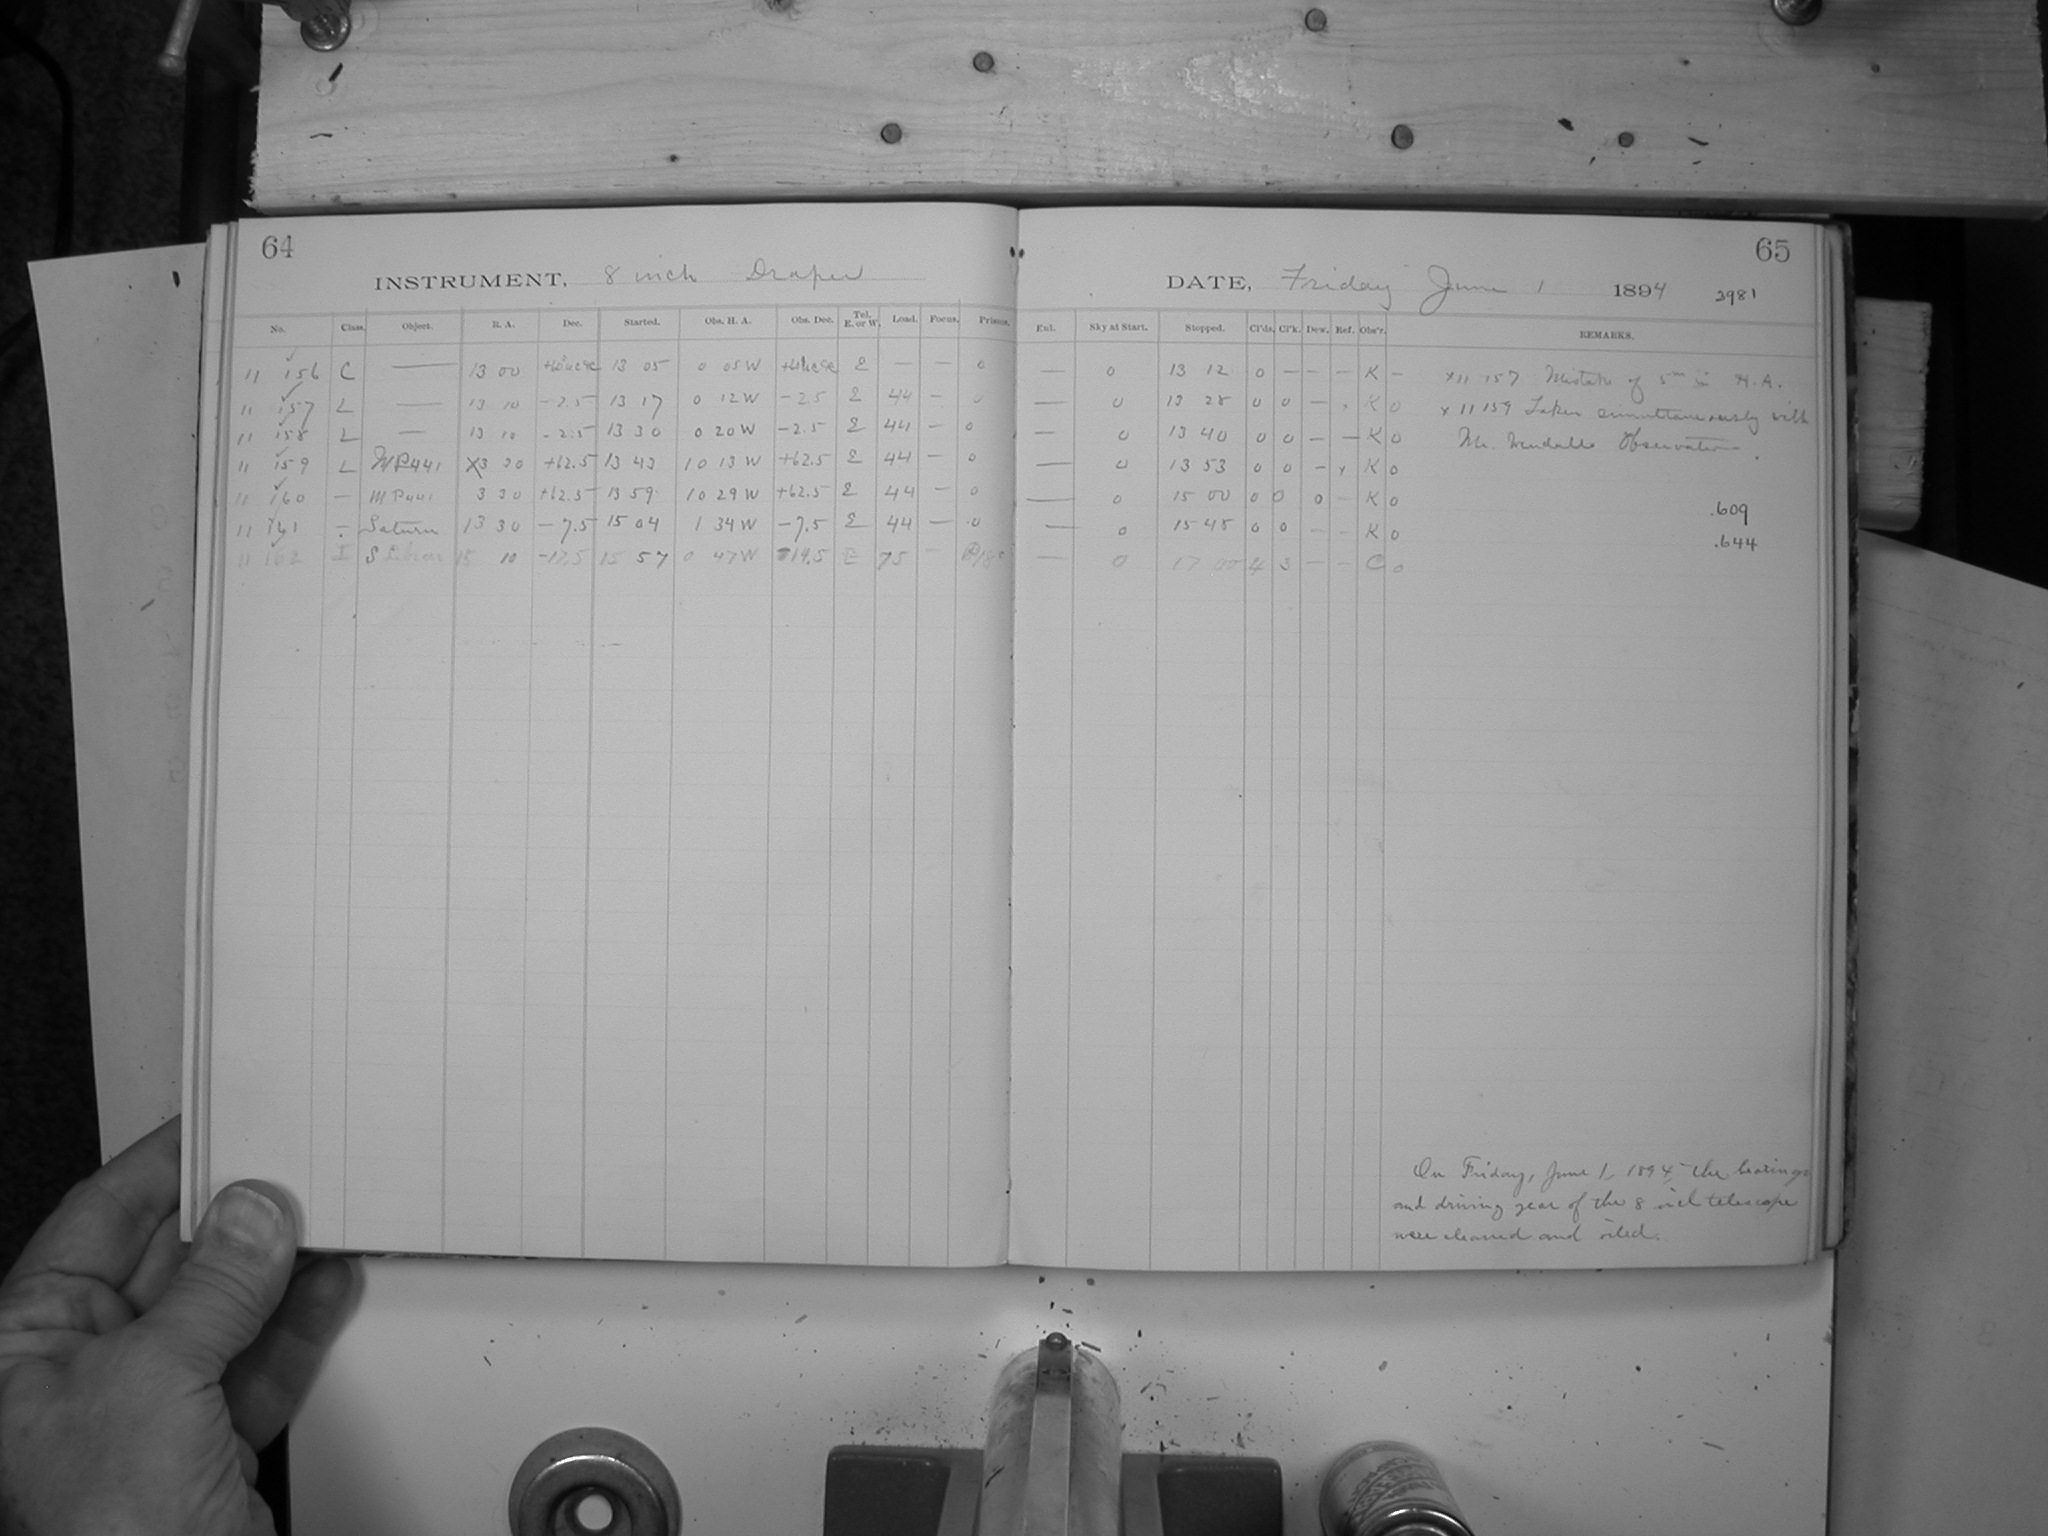 64
INSTRUMENT, 8 inch Draper
No. Class. Object. R. A. Dec. Started. Obs. H. A. Obs. Dec. Tel. E. or W. Load. Focus. Prisms.
11 156 C — 13 00 13 05 0 05 W E — — 0
11 157 L — 13 10 -2.5 13 17 0 12 W -2.5 E 44 — 0
11 158 L — 13 10 -2.5 13 30 0 20 W -2.5 E 44 — 0
11 159 L MP441 3 30 +62.5 13 43 10 13 W +62.5 E 44 — 0
11 160 — MP441 3 30 +62.5 13 59 10 29 W +62.5 E 44 — 0
11 161 — Saturn 13 30 -7.5 15 04 1 34 W -7.5 E 44 — 0
11 162 I S Librae 15 10 15 57 0 47 W E 75 —
65
DATE, Friday June 1 1894 2981
Ent. Sky at Start. Stopped. Cl'ds. Cl'k. Dew. Ref. Obs'r. REMARKS.
— 0 13 12 0 — — — K — x11 157 Mistake of 5m in H.A.
— 0 13 28 0 0 — K 0 x 11 159 Taken simultaneously with
— 0 13 40 0 0 — — K 0 Mr. Wendall's Observation.
— 0 13 53 0 0 — x K 0
— 0 15 00 0 0 0 — K 0 .609
— 0 15 45 0 0 — — K 0 .644
— 0 17 00 4 3 — — C 0
On Friday, June 1, 1894, the bearings
and driving gear of the 8 inch telescope
were cleaned and oiled.